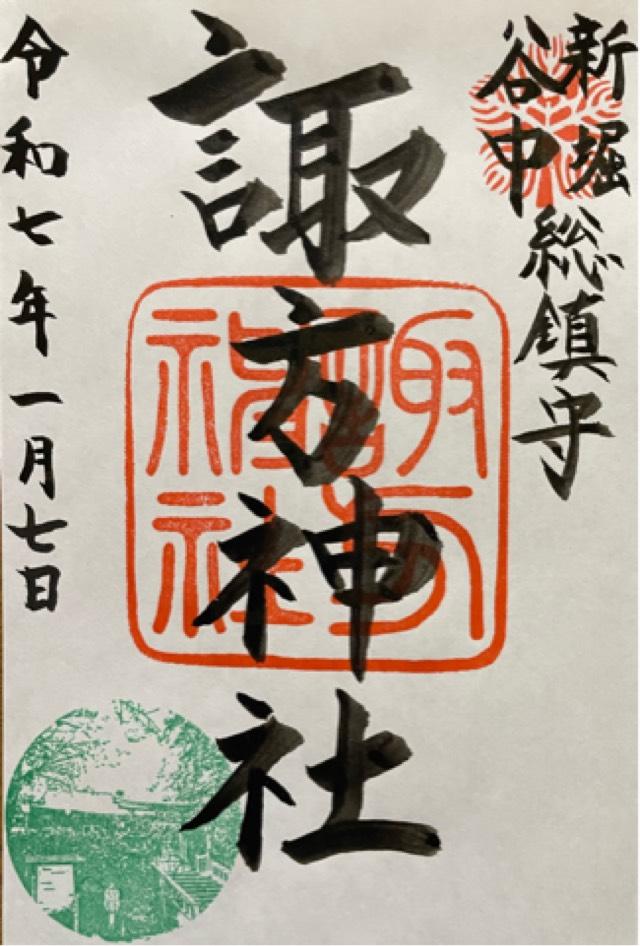 新堀
谷中
総鎮守
諏方神社
令和七年一月七日
諏方神社